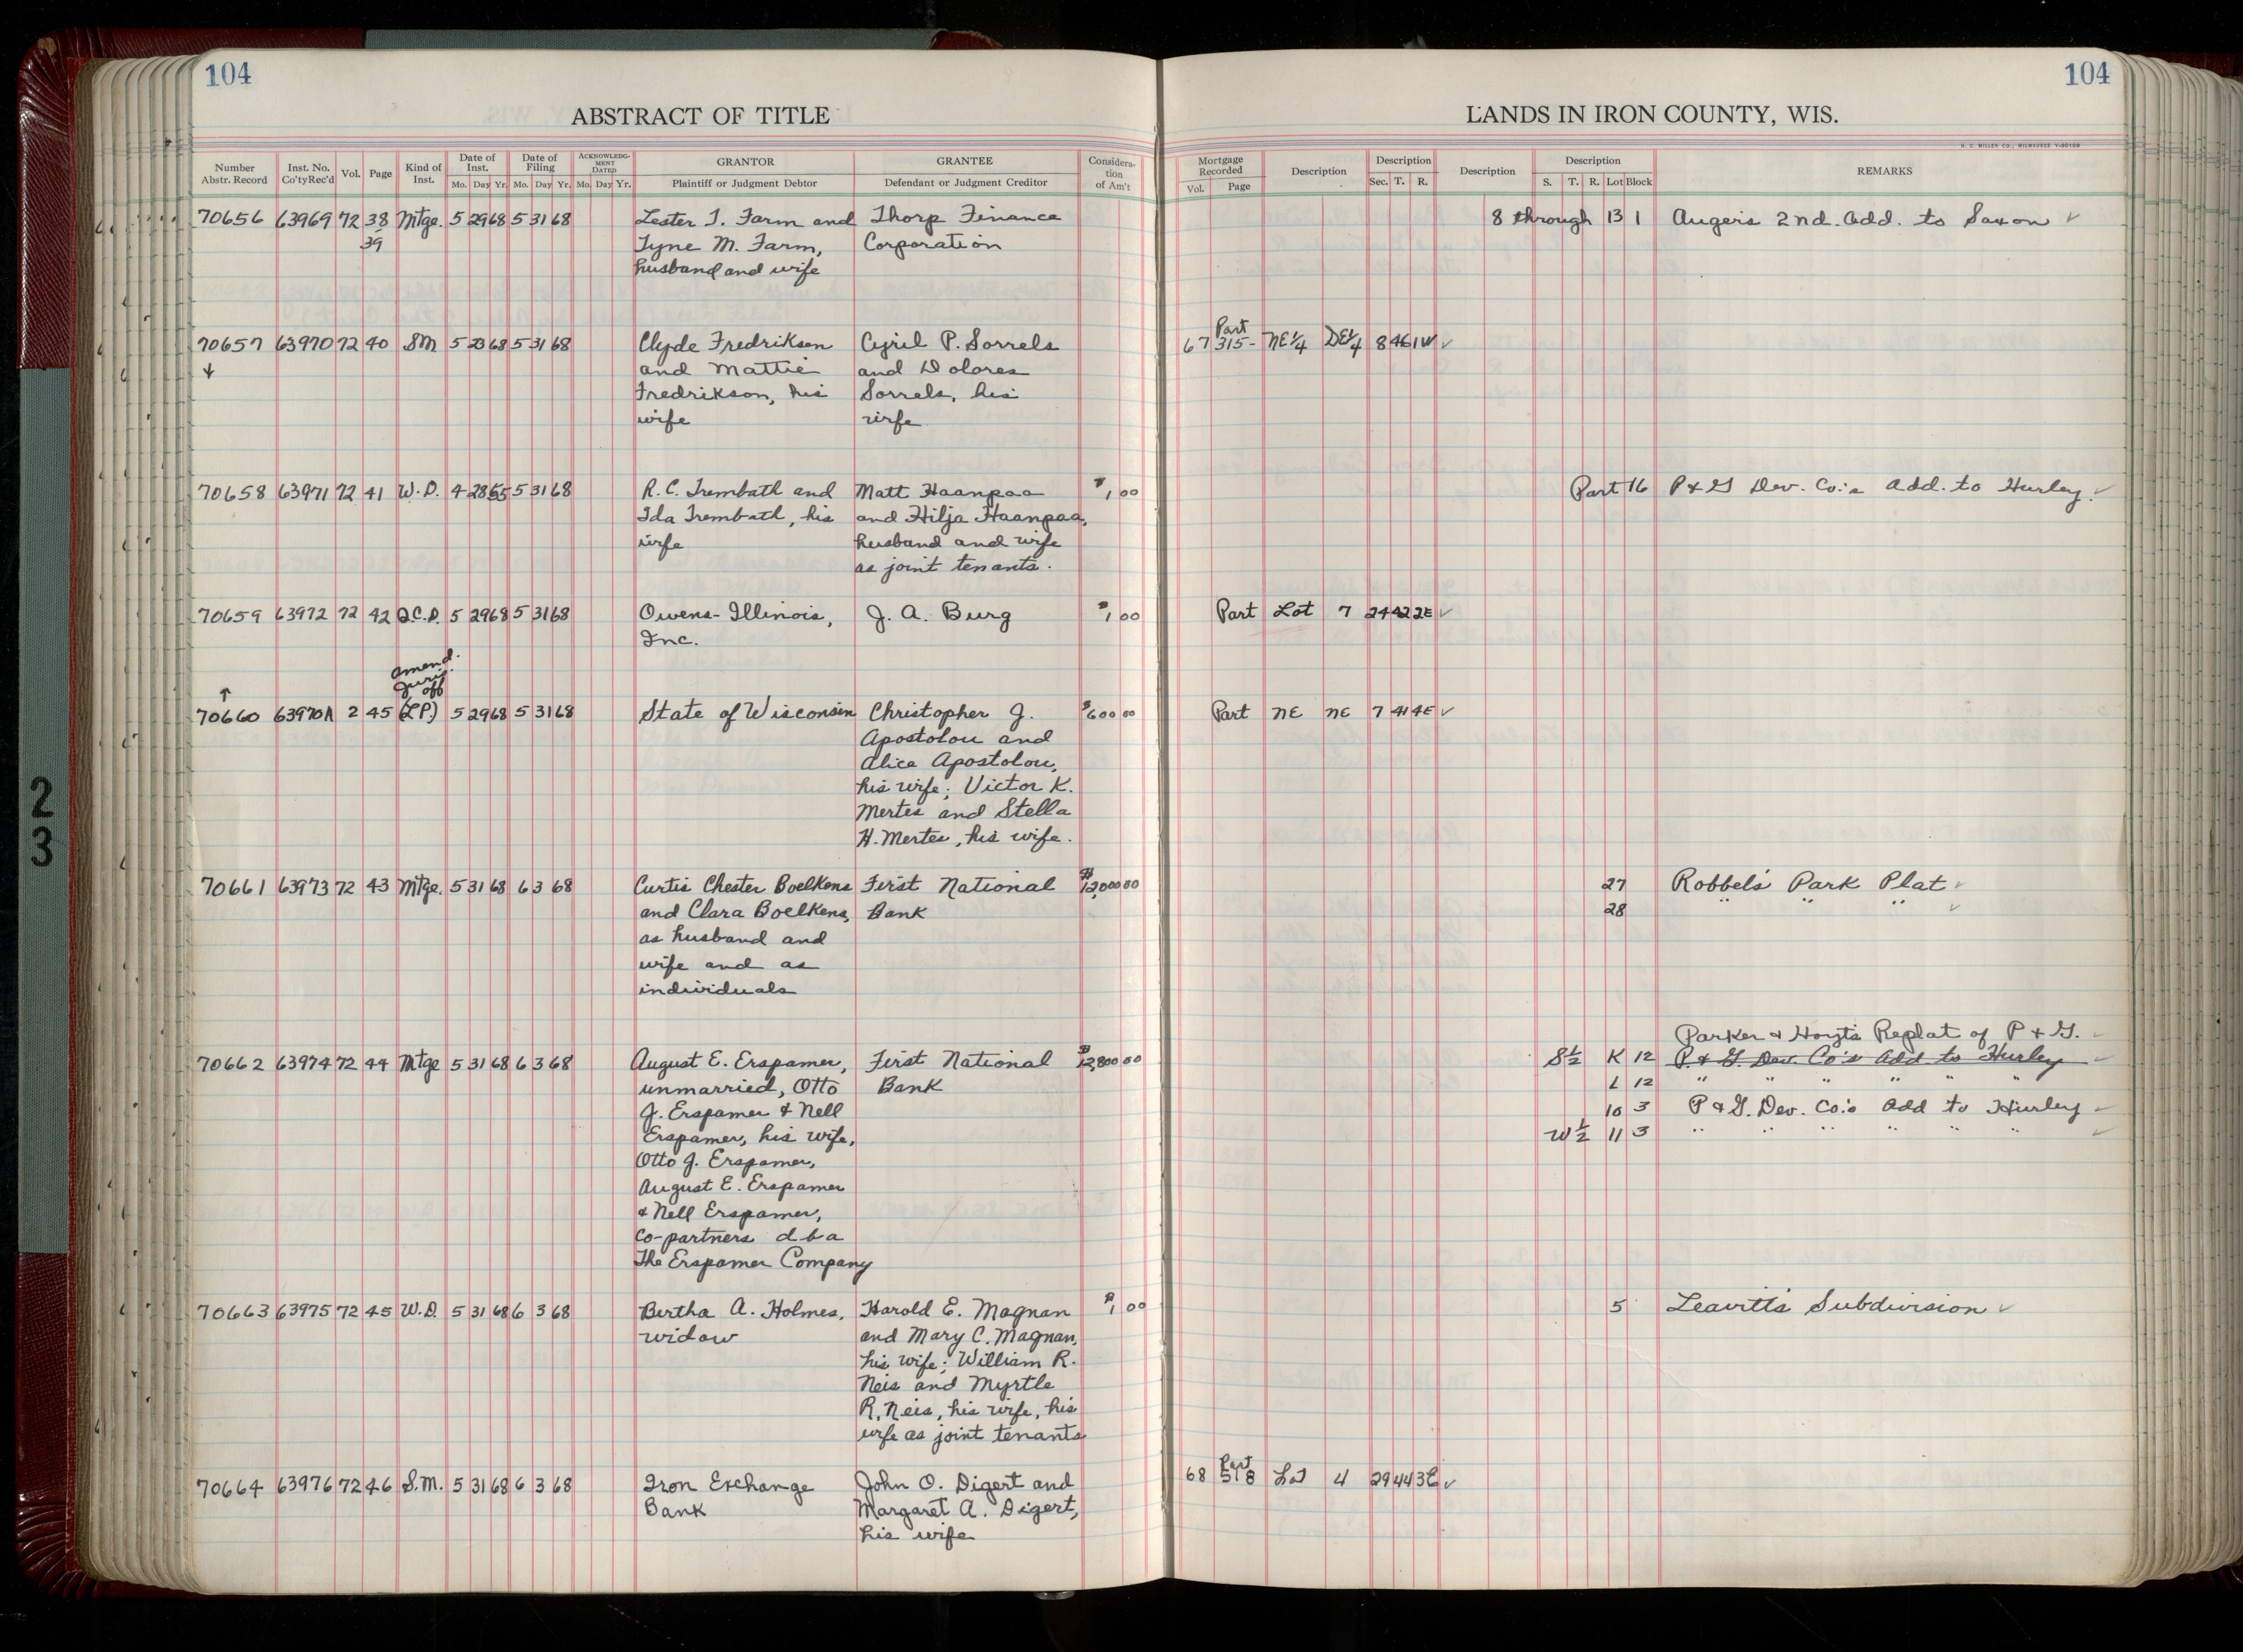 104
104
ABSTRACT OF TITLE
LANDS IN IRON COUNTY, WIS.
H. C. MILLER CO., MILWAUKEE
Number Abstr. Record Inst. No. Co'tyRec'd Vol. Page Kind of Inst. Date of Inst. Date of Filing ACKNOWLEDGMENT DATED GRANTOR GRANTEE Consideration of Am't Mortgage Recorded Description Description Description Description REMARKS
Mo. Day Yr. Mo. Day Yr. Mo. Day Yr. Plaintiff or Judgment Debtor Defendant or Judgment Creditor Vol. Page Sec. T. R. S. T. R. Lot Block
70656 63969 72 38 Mtge. 5 29 68 5 31 68 Lester T. Farm and Thorp Finance 8 through 13 1 Auger's 2nd. Add. to Saxon ✓
39 Tyne M. Farm, Corporation
husband and wife
Part
70657 63970 72 40 SM 5 23 68 5 31 68 Clyde Fredrikson Cyril P. Sorrels 67 315- NE¼ 8 46 1W ✓
↓ and Mattie and Dolores
Fredrikson, his Sorrels, his
wife wife
70658 63971 72 41 W.D. 4 28 55 5 31 68 R. C. Trembath and Matt Haanpaa $1 00 Part 16 P & G Dev. Co.'s Add. to Hurley. ✓
Ida Trembath, his and Hilja Haanpaa,
wife husband and wife
as joint tenants.
70659 63972 72 42 Q.C.D. 5 29 68 5 31 68 Owens-Illinois, J. A. Burg $1 00 Part Lot 7 24 42 2E ✓
Inc.
amend.
Juris.
↑ off
70660 63970A 2 45 (LP.) 5 29 68 5 31 68 State of Wisconsin Christopher J. $600 00 Part NE NE 7 41 4E ✓
Apostolou and
Alice Apostolou,
his wife; Victor K.
Mertes and Stella
H. Mertes, his wife.
70661 63973 72 43 Mtge. 5 31 68 6 3 68 Curtis Chester Boelkens First National $12,000 00 27 Robbels' Park Plat ✓
and Clara Boelkens, Bank 28 " " " ✓
as husband and
wife and as
individuals
Parker & Hoyt's Replat of P & G. ✓
70662 63974 72 44 Mtge 5 31 68 6 3 68 August E. Erspamer, First National $12,800 00 S½ K 12 P. & G. Dev. Co's Add to Hurley ✓
unmarried, Otto Bank L 12 " " " " " "
J. Erspamer & Nell 10 3 P & G. Dev. Co.'s Add to Hurley ✓
Erspamer, his wife, W½ 11 3 " " " " " " ✓
Otto J. Erspamer,
August E. Erspamer
& Nell Erspamer,
Co-partners d-b-a
The Erspamer Company
70663 63975 72 45 W.D. 5 31 68 6 3 68 Bertha A. Holmes, Harold E. Magnan $1 00 5 Leavitt's Subdivision ✓
widow and Mary C. Magnan,
his wife; William R.
Neis and Myrtle
R. Neis, his wife, his
wife as joint tenants
Part
70664 63976 72 46 S.M. 5 31 68 6 3 68 Iron Exchange John O. Digert and 68 518 Lot 4 29 44 3E ✓
Bank Margaret A. Digert,
his wife
2
3